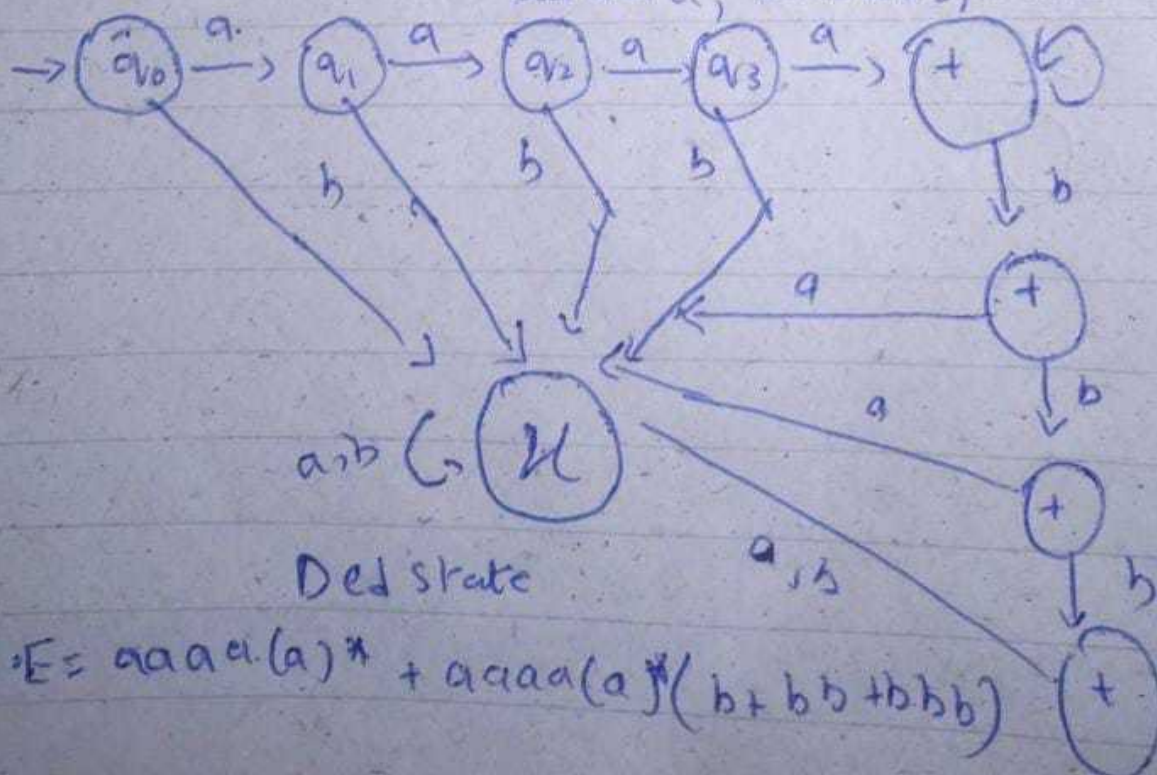 q0 a. q1 a q2 a q3 a +
b b b b
a +
b
a
a,b x +
a,b b
Ded state
E= aaaa.(a)* + aaaa(a)*(b+bb+bbb) +